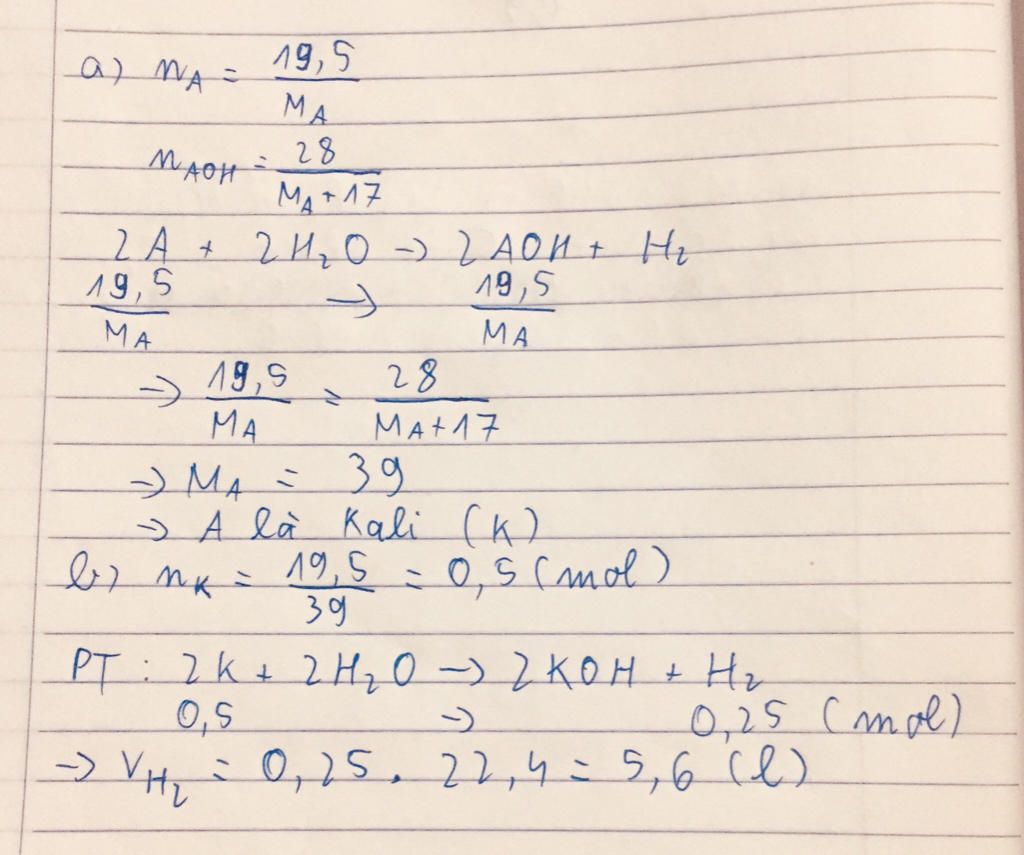 a) nA = 19,5 / MA
nAOH = 28 / MA + 17
2A + 2H₂O → 2AOH + H₂
19,5 / MA → 19,5 / MA
→ 19,5 / MA = 28 / MA + 17
→ MA = 39
→ A là Kali (K)
b) nK = 19,5 / 39 = 0,5 (mol)
PT : 2K + 2H₂O → 2KOH + H₂
0,5 → 0,25 (mol)
→ VH₂ = 0,25 . 22,4 = 5,6 (l)